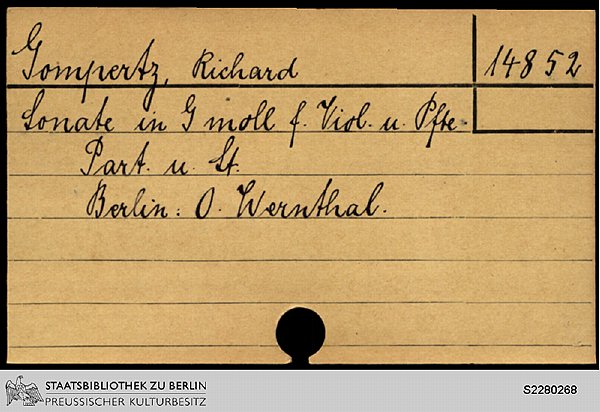 Gompertz, Richard
14852
Sonate in G moll f. Viol. u. Pfte
Part. u. St.
Berlin: O. Wernthal.
STAATSBIBLIOTHEK ZU BERLIN
PREUSSISCHER KULTURBESITZ
S2280268